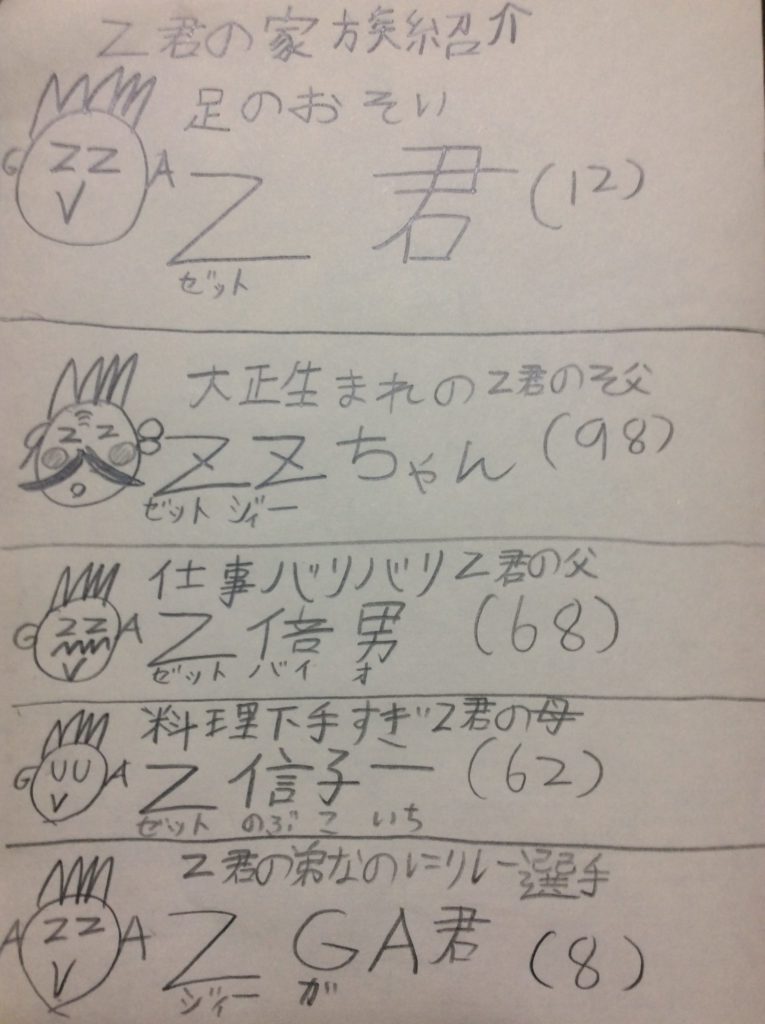 Z君の家族紹介
足のおそい
G ZZ A Z 君 (12)
ゼット
大正生まれのZ君のそ父
Z Z ZZちゃん (98)
ゼット ジィー
仕事バリバリZ君の父
G ZZ A Z 倍男 (68)
ゼット バイ オ
料理下手すぎZ君の母
G A Z 信子一 (62)
ゼット のぶこ いち
Z君の弟なのにリレー選手
A ZZ A Z GA君 (8)
ジィー ガ